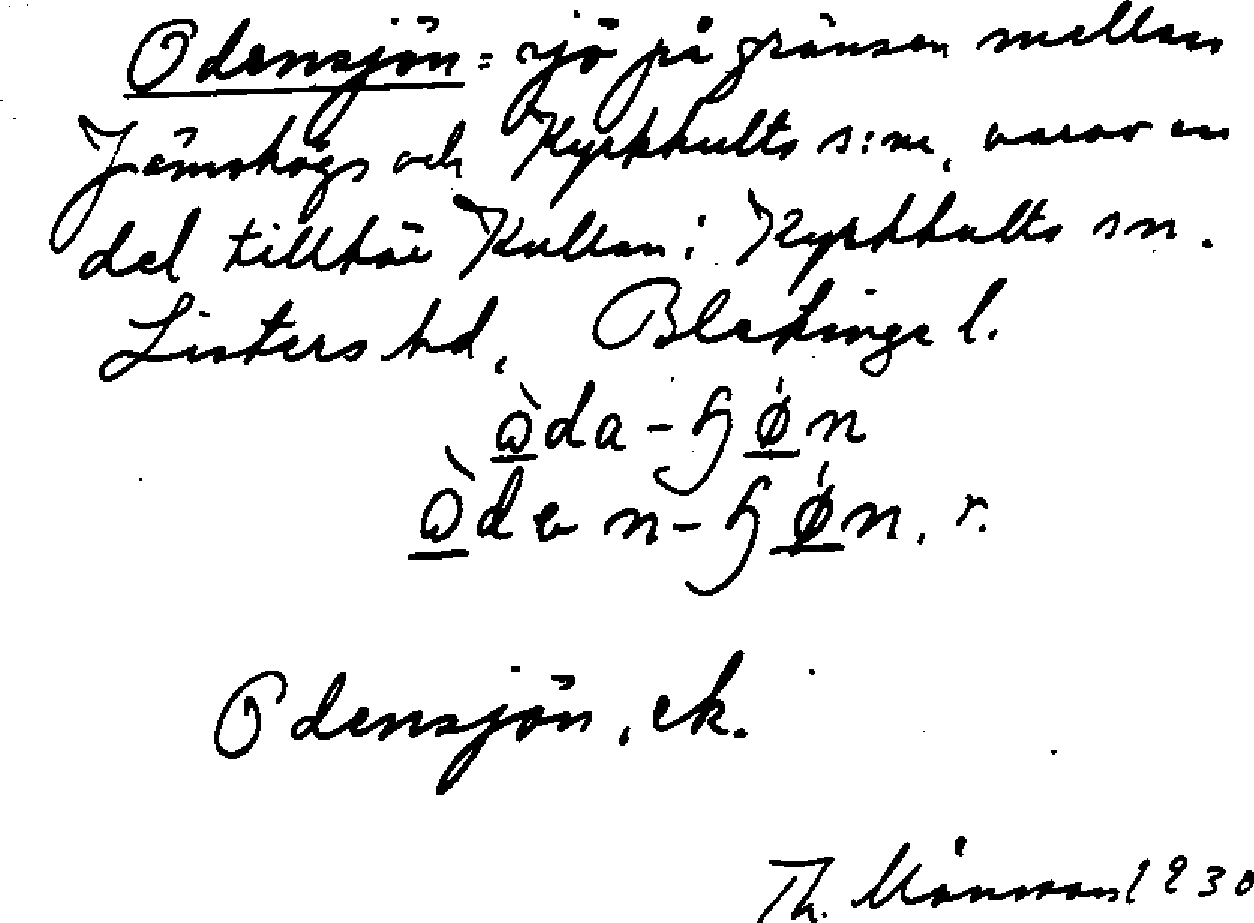 Odensjön = sjö på gränsen mellan
Jämshögs och Kyrkhults s:nr, varav en
del tillhör Kullan i Kyrkhults sn.
Listers hd, Blekinge l.
ὼ̲da-ɧǿ̲n
ὼ̲den-ɧǿ̲n, r.
Odensjön, ek.
Th. Månsson 1930